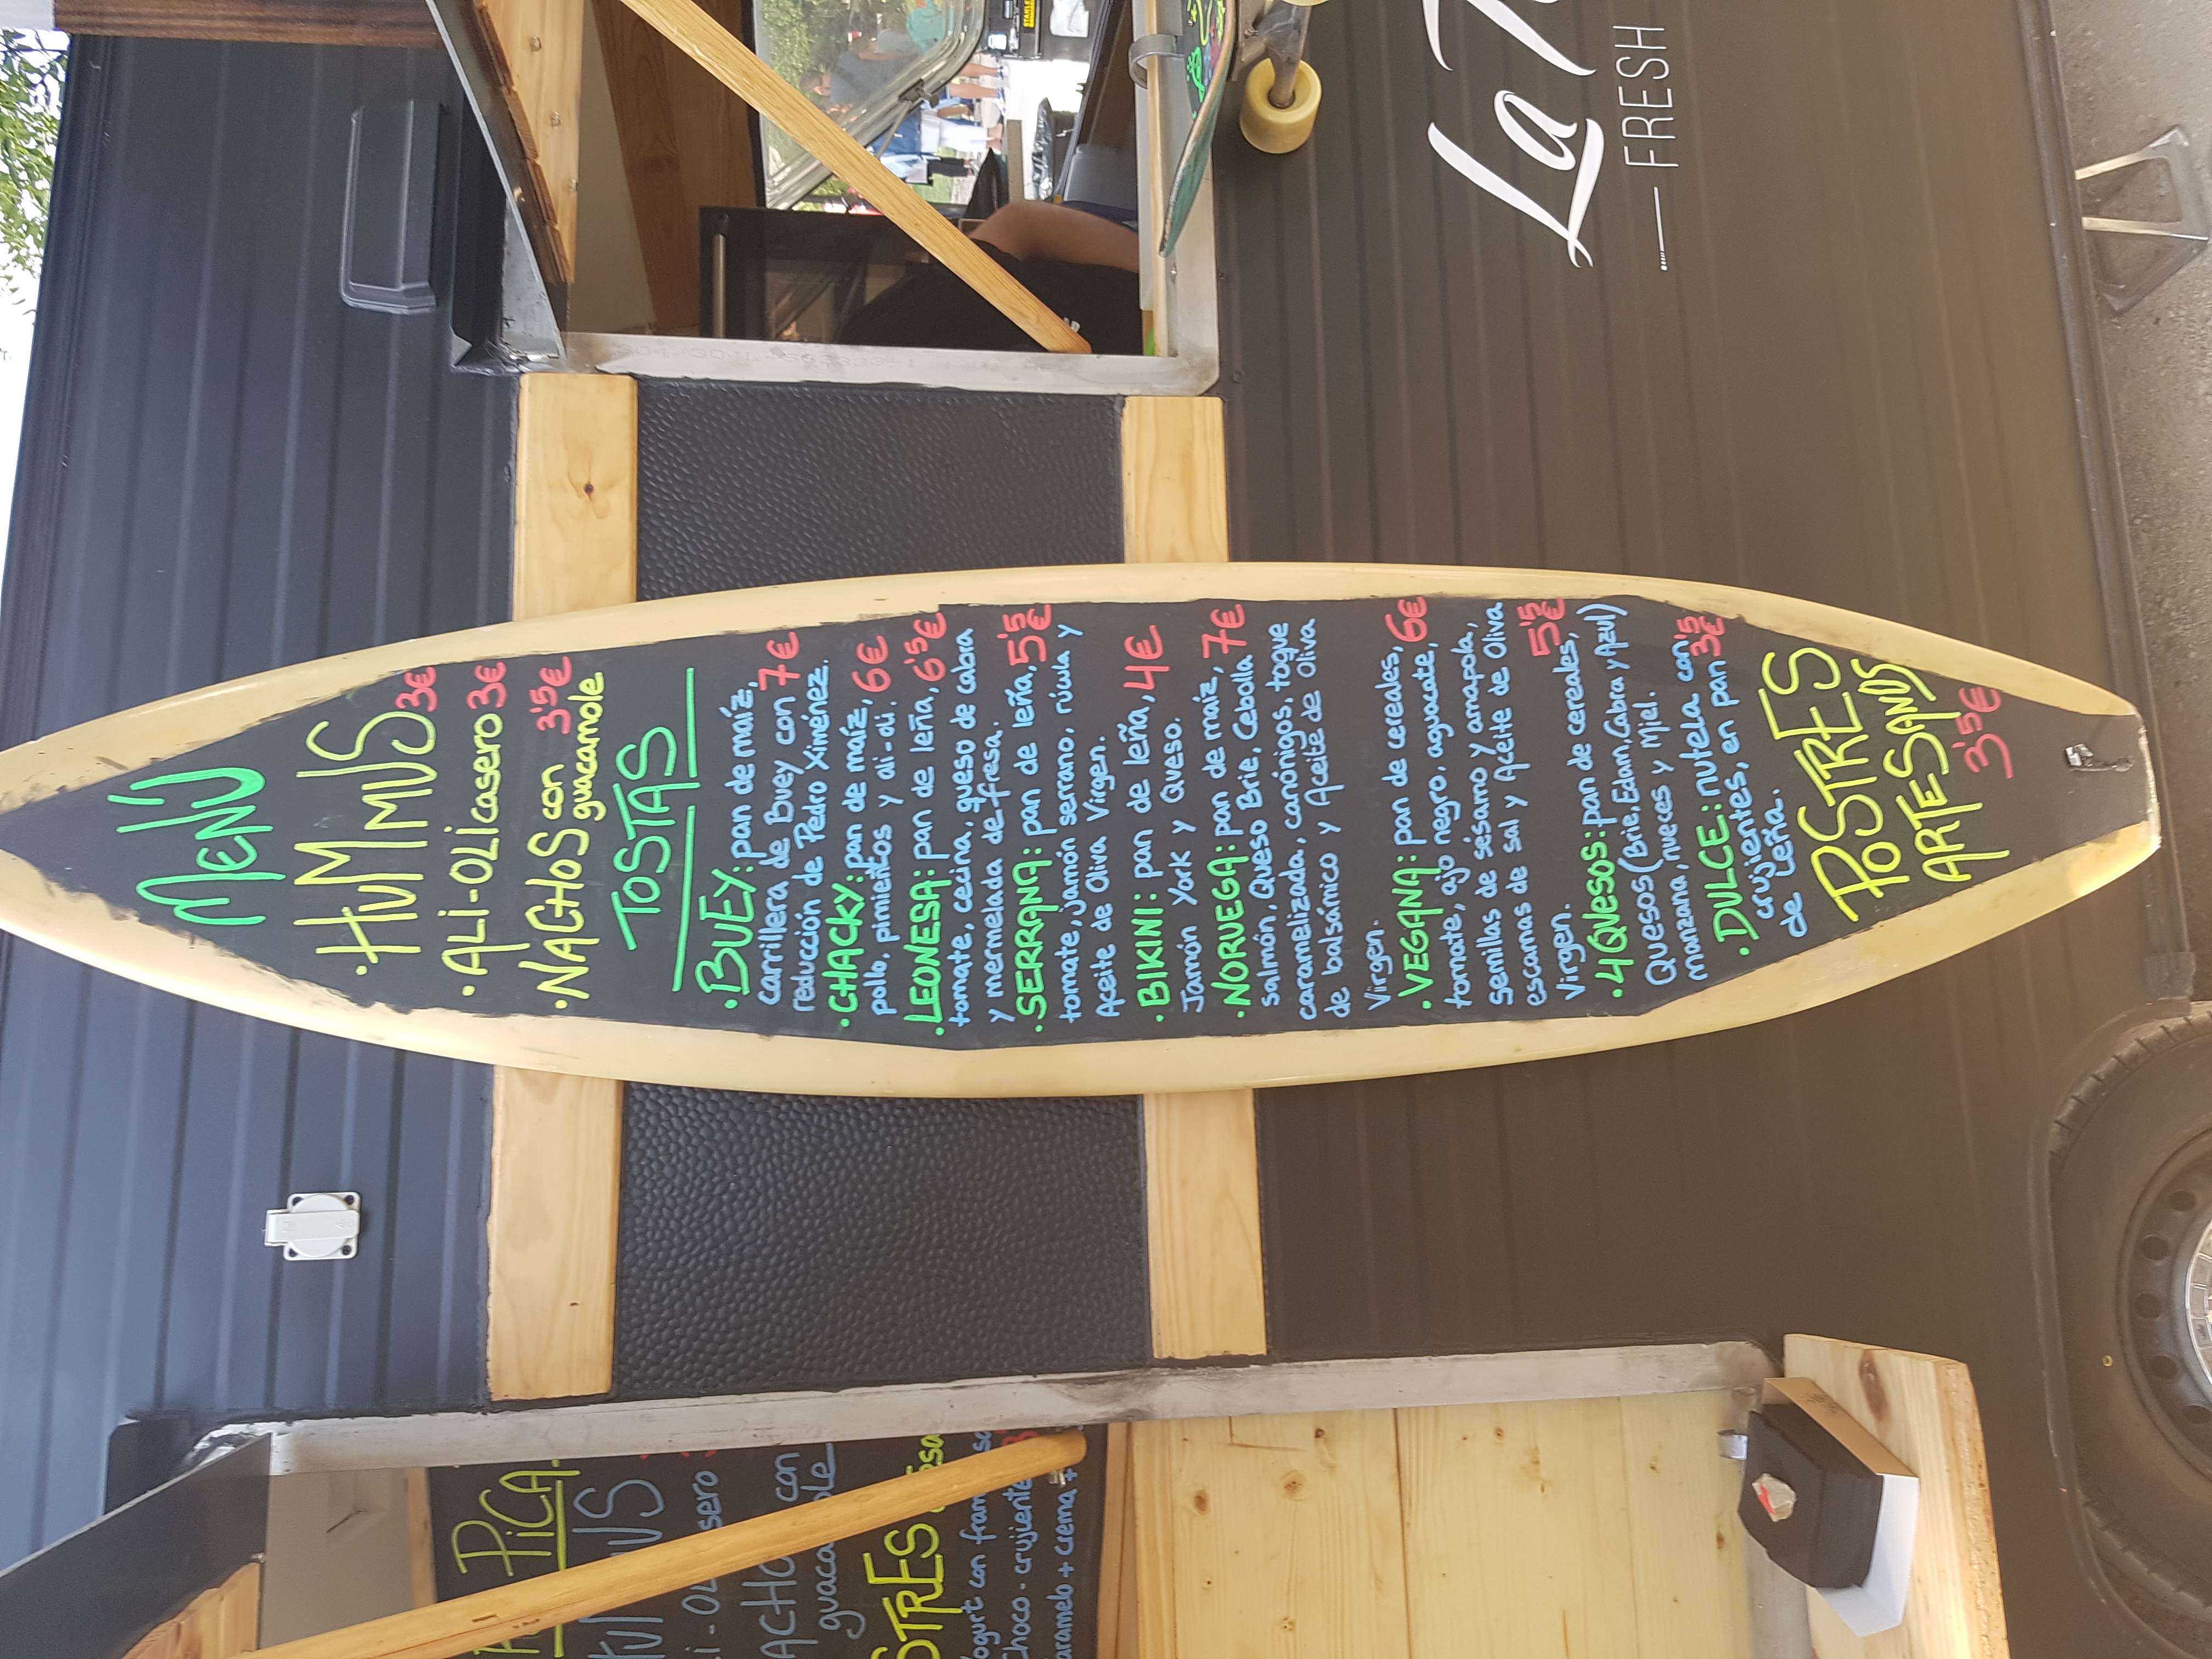 MENÚ
·HUMMUS 3€
·ALI-OLI casero 3€
·NACHOS con 3'5€
guacamole
TOSTAS
·BUEY: pan de maíz,
carrillera de Buey con 7€
reducción de Pedro Ximénez.
·CHACKY: pan de maíz, 6€
pollo, pimientos y ali-oli.
·LEONESA: pan de leña, 6'5€
tomate, cecina, queso de cabra
y mermelada de fresa.
·SERRANA: pan de leña, 5'5€
tomate, jamón serrano, rúcula y
Aceite de Oliva Virgen.
·BIKINI: pan de leña, 4€
Jamón York y Queso.
·NORUEGA: pan de maíz, 7€
salmón, Queso Brie, Cebolla
caramelizada, canónigos, toque
de balsámico y Aceite de Oliva
Virgen.
·VEGANA: pan de cereales, 6€
tomate, ajo negro, aguacate,
semillas de sésamo y amapola,
escamas de sal y Aceite de Oliva
Virgen. 5'5€
·4 QUESOS: pan de cereales,
Quesos (Brie, Edam, Cabra y Azul)
manzana, nueces y Miel.
·DULCE: nutela con 3'5€
crujientes, en pan
de Leña.
POSTRES
ARTESANOS
3'5€
La
FRESH
PICA
ACHO con
ogurt con
Choco-crujiente
aramelo + crema +
STANLEY